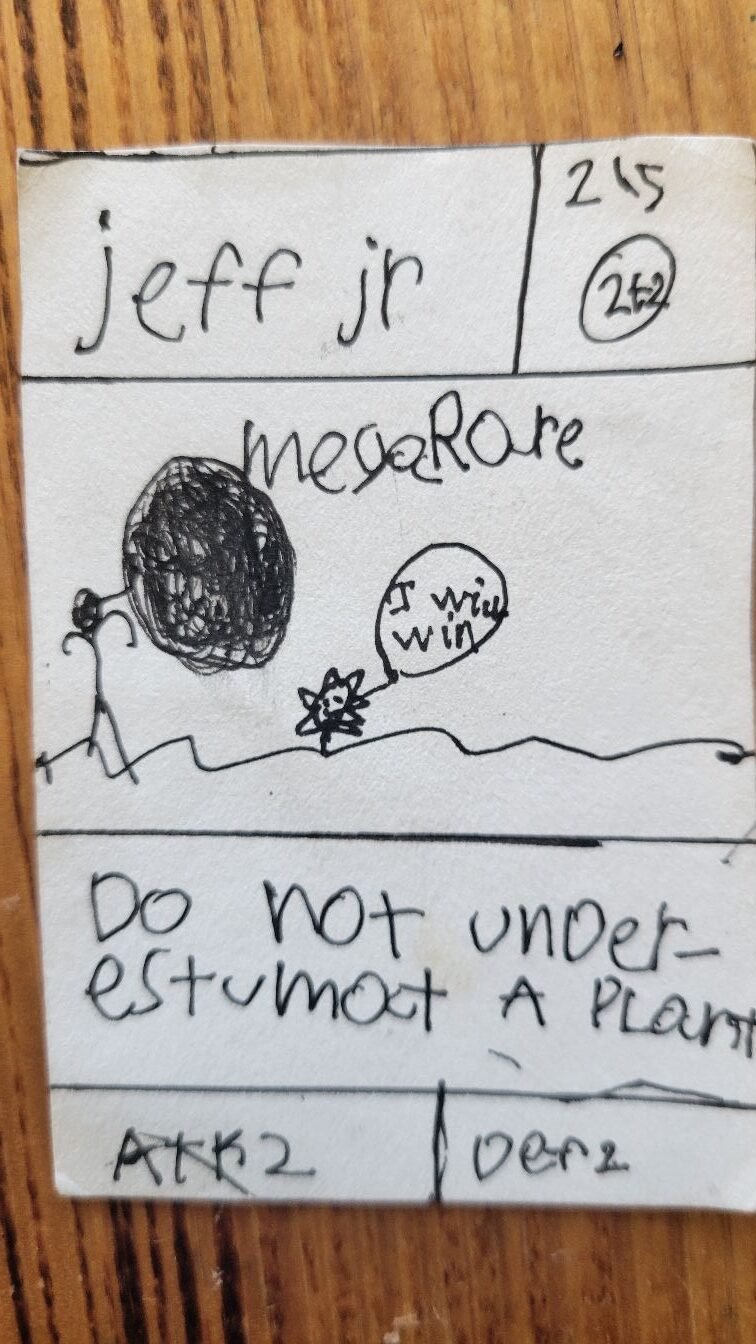 jeff jr
215
2+2
megaRare
I will
win
Do not under-
estumat A PLant
ATK 2
DeF 2